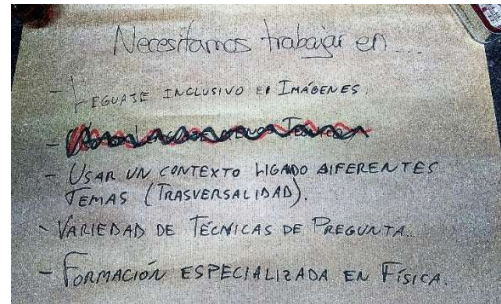 Necesitamos trabajar en...
- LEGUAJE INCLUSIVO EN IMÁGENES.
- USAR UN CONTEXTO LIGADO A DIFERENTES
TEMAS (TRASVERSALIDAD).
- VARIEDAD DE TÉCNICAS DE PREGUNTA.
- FORMACIÓN ESPECIALIZADA EN FÍSICA.